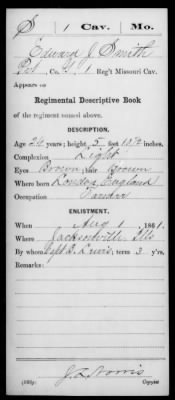 S | 1 | Cav. | Mo.
Edward J. Smith
Pvt, Co. 1 Reg't Missouri Cav.
Appears on
Regimental Descriptive Book
of the regiment named above.
DESCRIPTION.
Age 24 years; height 5 feet inches.
Complexion Light
Eyes Brown; hair Brown
Where born London, England
Occupation
ENLISTMENT.
When Aug 1, 1861.
Where Jacksonville Ills
By whom Capt. Lewis; term 3 y'rs.
Remarks:
Copyist.